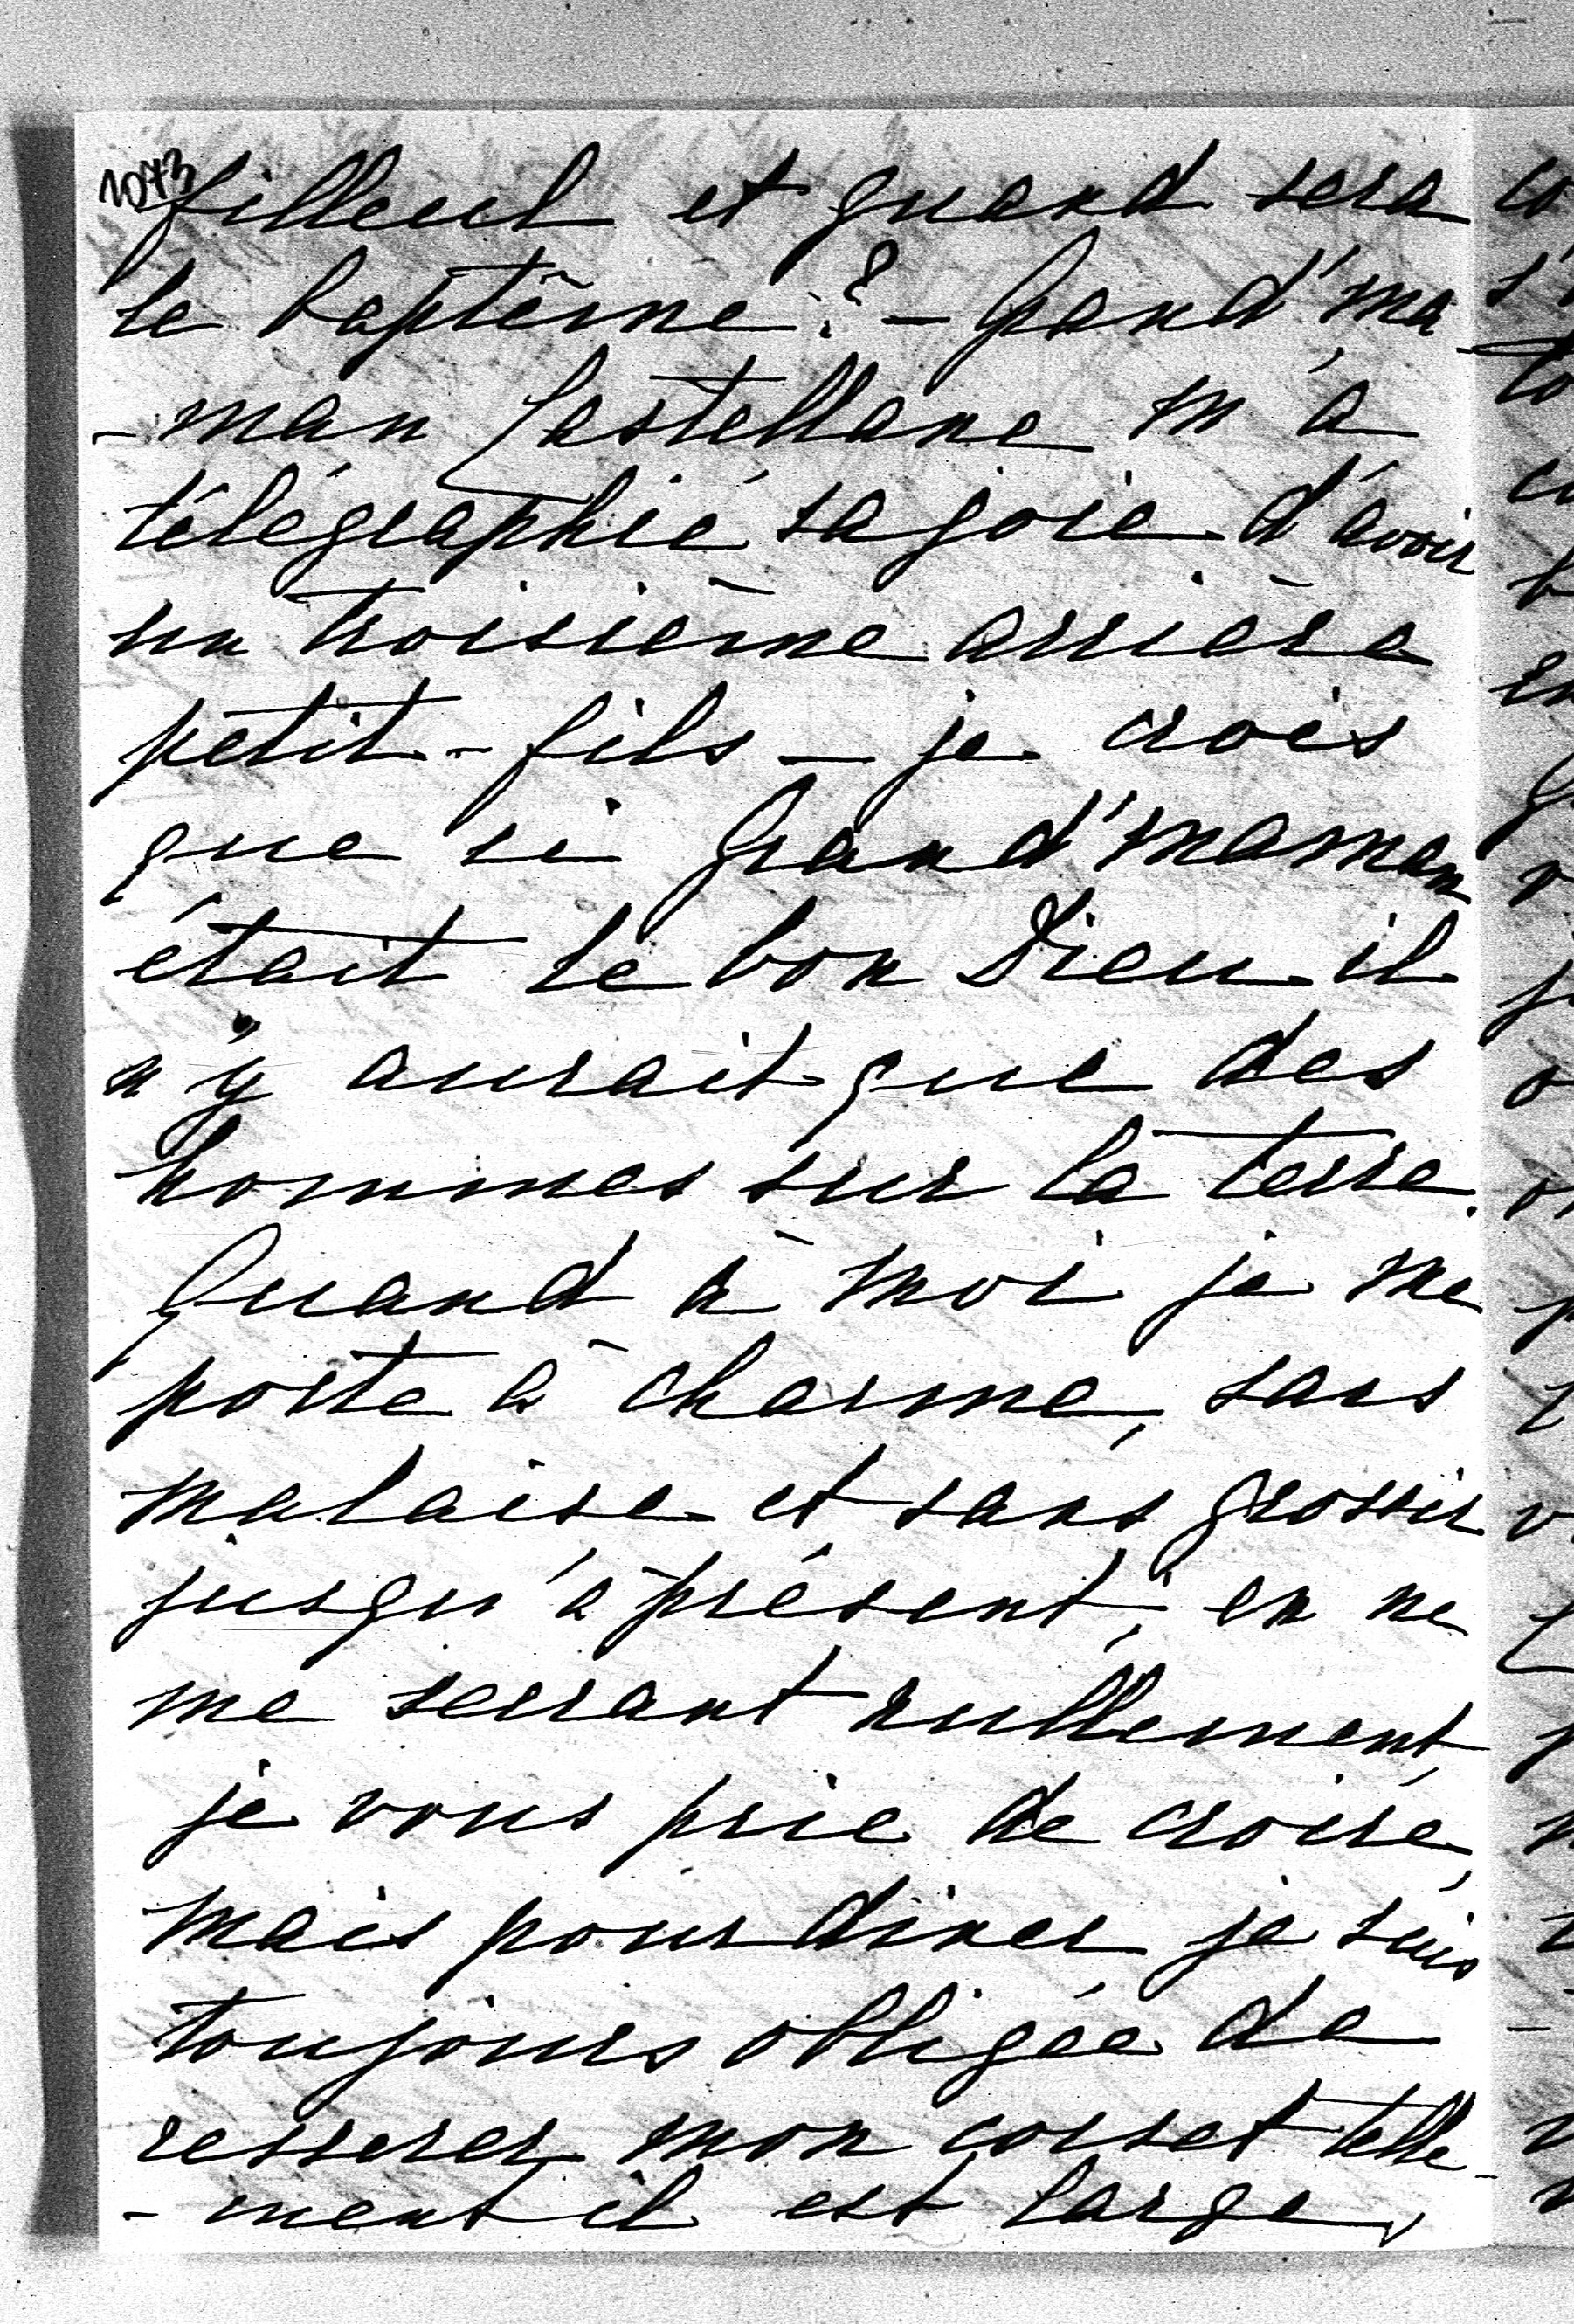 1073
filleul et quand sera
le baptême? – Grand'ma-
-man Castellane m'a
télégraphié sa joie d'avoir
un troisième arrière
petit-fils – je crois
que si Grand'maman
était le bon Dieu il
n'y aurait que des
hommes sur la terre.
Quand à moi je me
porte à charme, sans
malaise et sans grossir
jusqu'à présent; en ne
me serrant nullement,
je vous prie de croire,
mais pour dîner je suis
toujours obligée de
resserrer mon corset telle-
-ment il est large,